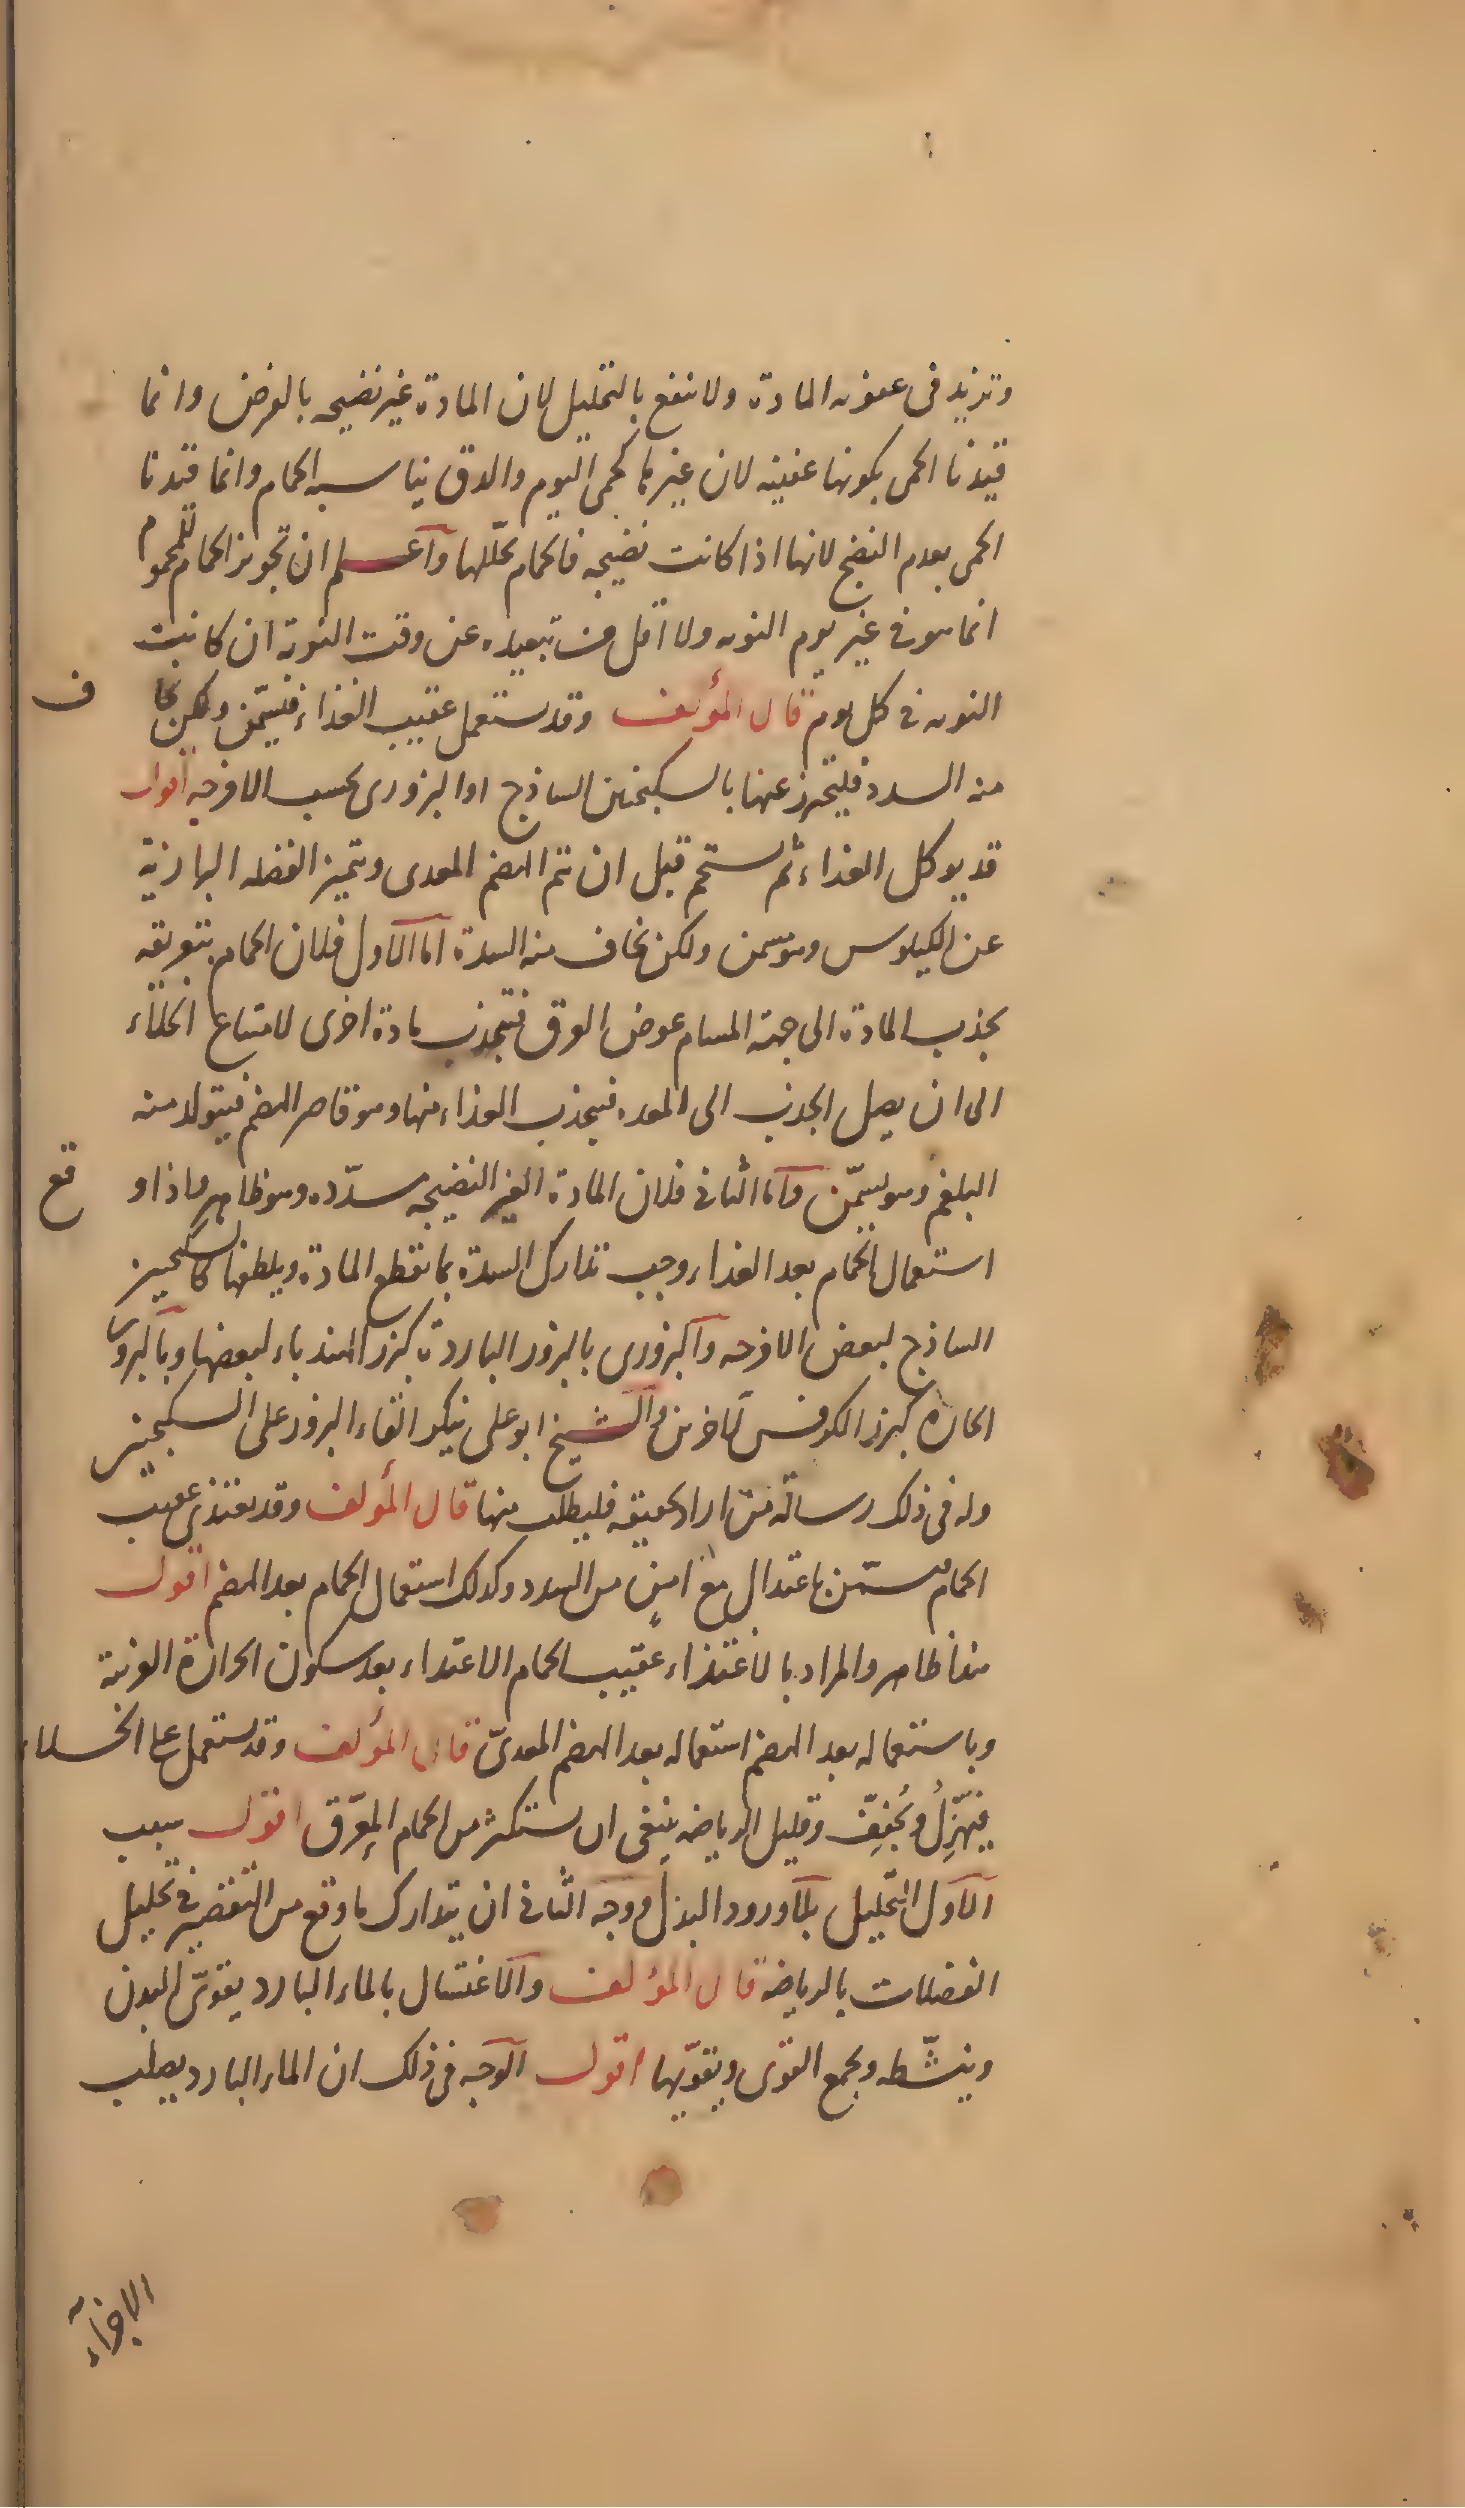 وتزيد فى عفونه المادة ولا ينفع بالتحليل لان المادة غير نضيجه بالفرض وانما
قيدنا الحمى بكونها عفنيه لان غيرها كحمى اليوم والدق يناسبه الحمام وانما قيدنا
الحمى بعدم النضج لانها اذا كانت نضيجه فالحمام يحللها وآعلم ان تجويز الحمام للمحموم
انما هو فى غير يوم النوبه ولا اقل من تبعيده عن وقت النوبة ان كانت
النوبه فى كل يوم قال المؤلف وقد يستعمل عقيب الغذاء فيسمّن ولكن يخا ف
منه السدد فليتحرز عنها بالسكنجبين الساذج او البزورى بحسب الامزجه اقول
قد يوكل الغذاء ثم يستحم قبل ان يتم الهضم المعدى ويتميز الفضله البرازية
عن الكيلوس وهو يسمن ولكن يخاف منه السدة اما الاول فلان الحمام بتعريقه
يجذب المادة الى جهة المسام عوض العرق فتنجذب مادة اخرى لامتناع الخلاء
الى ان يصل الجذب الى المعده فينجذب الغذاء منها وهو قاصر الهضم فيتولد منه
البلغم وهو يسمّن وآما الثانى فلان المادة الغير النضيجه مسدّده وهو ظاهر فاذا و قع
استعمال الحمام بعد الغذاء وجب تدارك السدة بما يقطع المادة ويلطفها كالسكنجبين
الساذج لبعض الامزجه وآلبزورى بالبزور الباردة كبزر الهندباء لبعضها وبآلبزورى
الحاره كبزر الكرفس لآخرين وآلشيخ ابو على ينكر القاء البزور على السكنجبين
وله فى ذلك رسالة من اراد تحقيقه فليطلب منها قال المؤلف وقد يغتذى عقيب
الحمام فيسمّن باعتدال مع امنٍ من السدد وكذلك استعمال الحمام بعد الهضم اقول
هذا ظاهر والمراد بالاغتذاء عقيب الحمام الاغتذاء بعد سكون الحرارة الغريبة
وباستعماله بعد الهضم استعماله بعد الهضم المعدىّ قال المؤلف وقد يستعمل على الخلاء
فيهزّلُ ويُجفِّف وقليل الرياضه ينبغى ان يستكثر من الحمام المِعرّق اقول سبب
آلاول التحليل بلا ورود البدل ووجه الثانى ان يتدارك ما وقع من التقصير فى تحليل
الفضلات بالرياضه قال المؤلف وآلاغتسال بالماء البارد يقوىّ البدن
وينشّطه ويجمع القوى ويقوّيها اقول آلوجه فى ذلك ان الماء البارد يصلب
الاجزآء